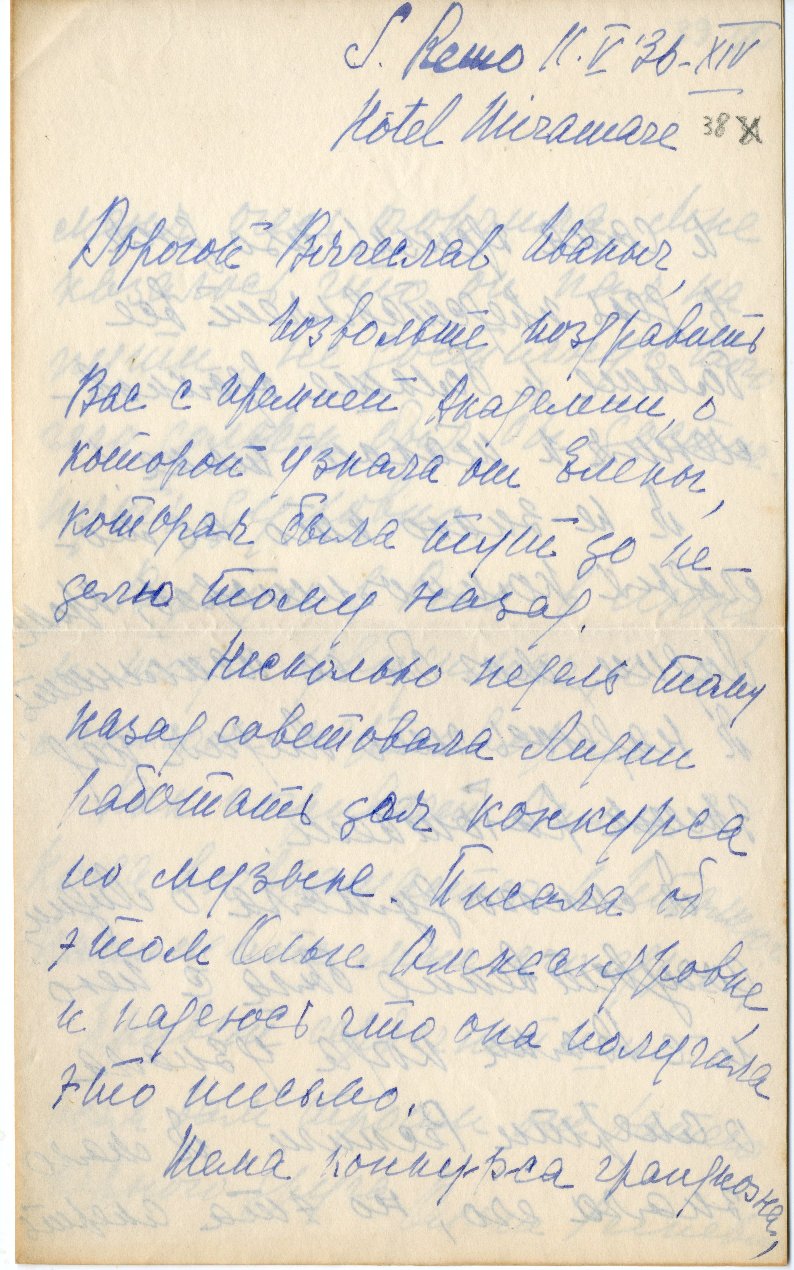 S. Remo 11.V '36-XIV
Hôtel Miramare 38
Дорогой Вячеслав Иваныч,
позвольте поздравить
Вас с премией Академии, о
которой узнала от Елены,
которая была тут до не-
делю тому назад.
Несколько недель тому
назад советовала Лидии
работать для конкурса
по музыке. Писала об
этом Ольге Александровне,
и надеюсь что она получила
это письмо.
Тема конкурса грандиозная,